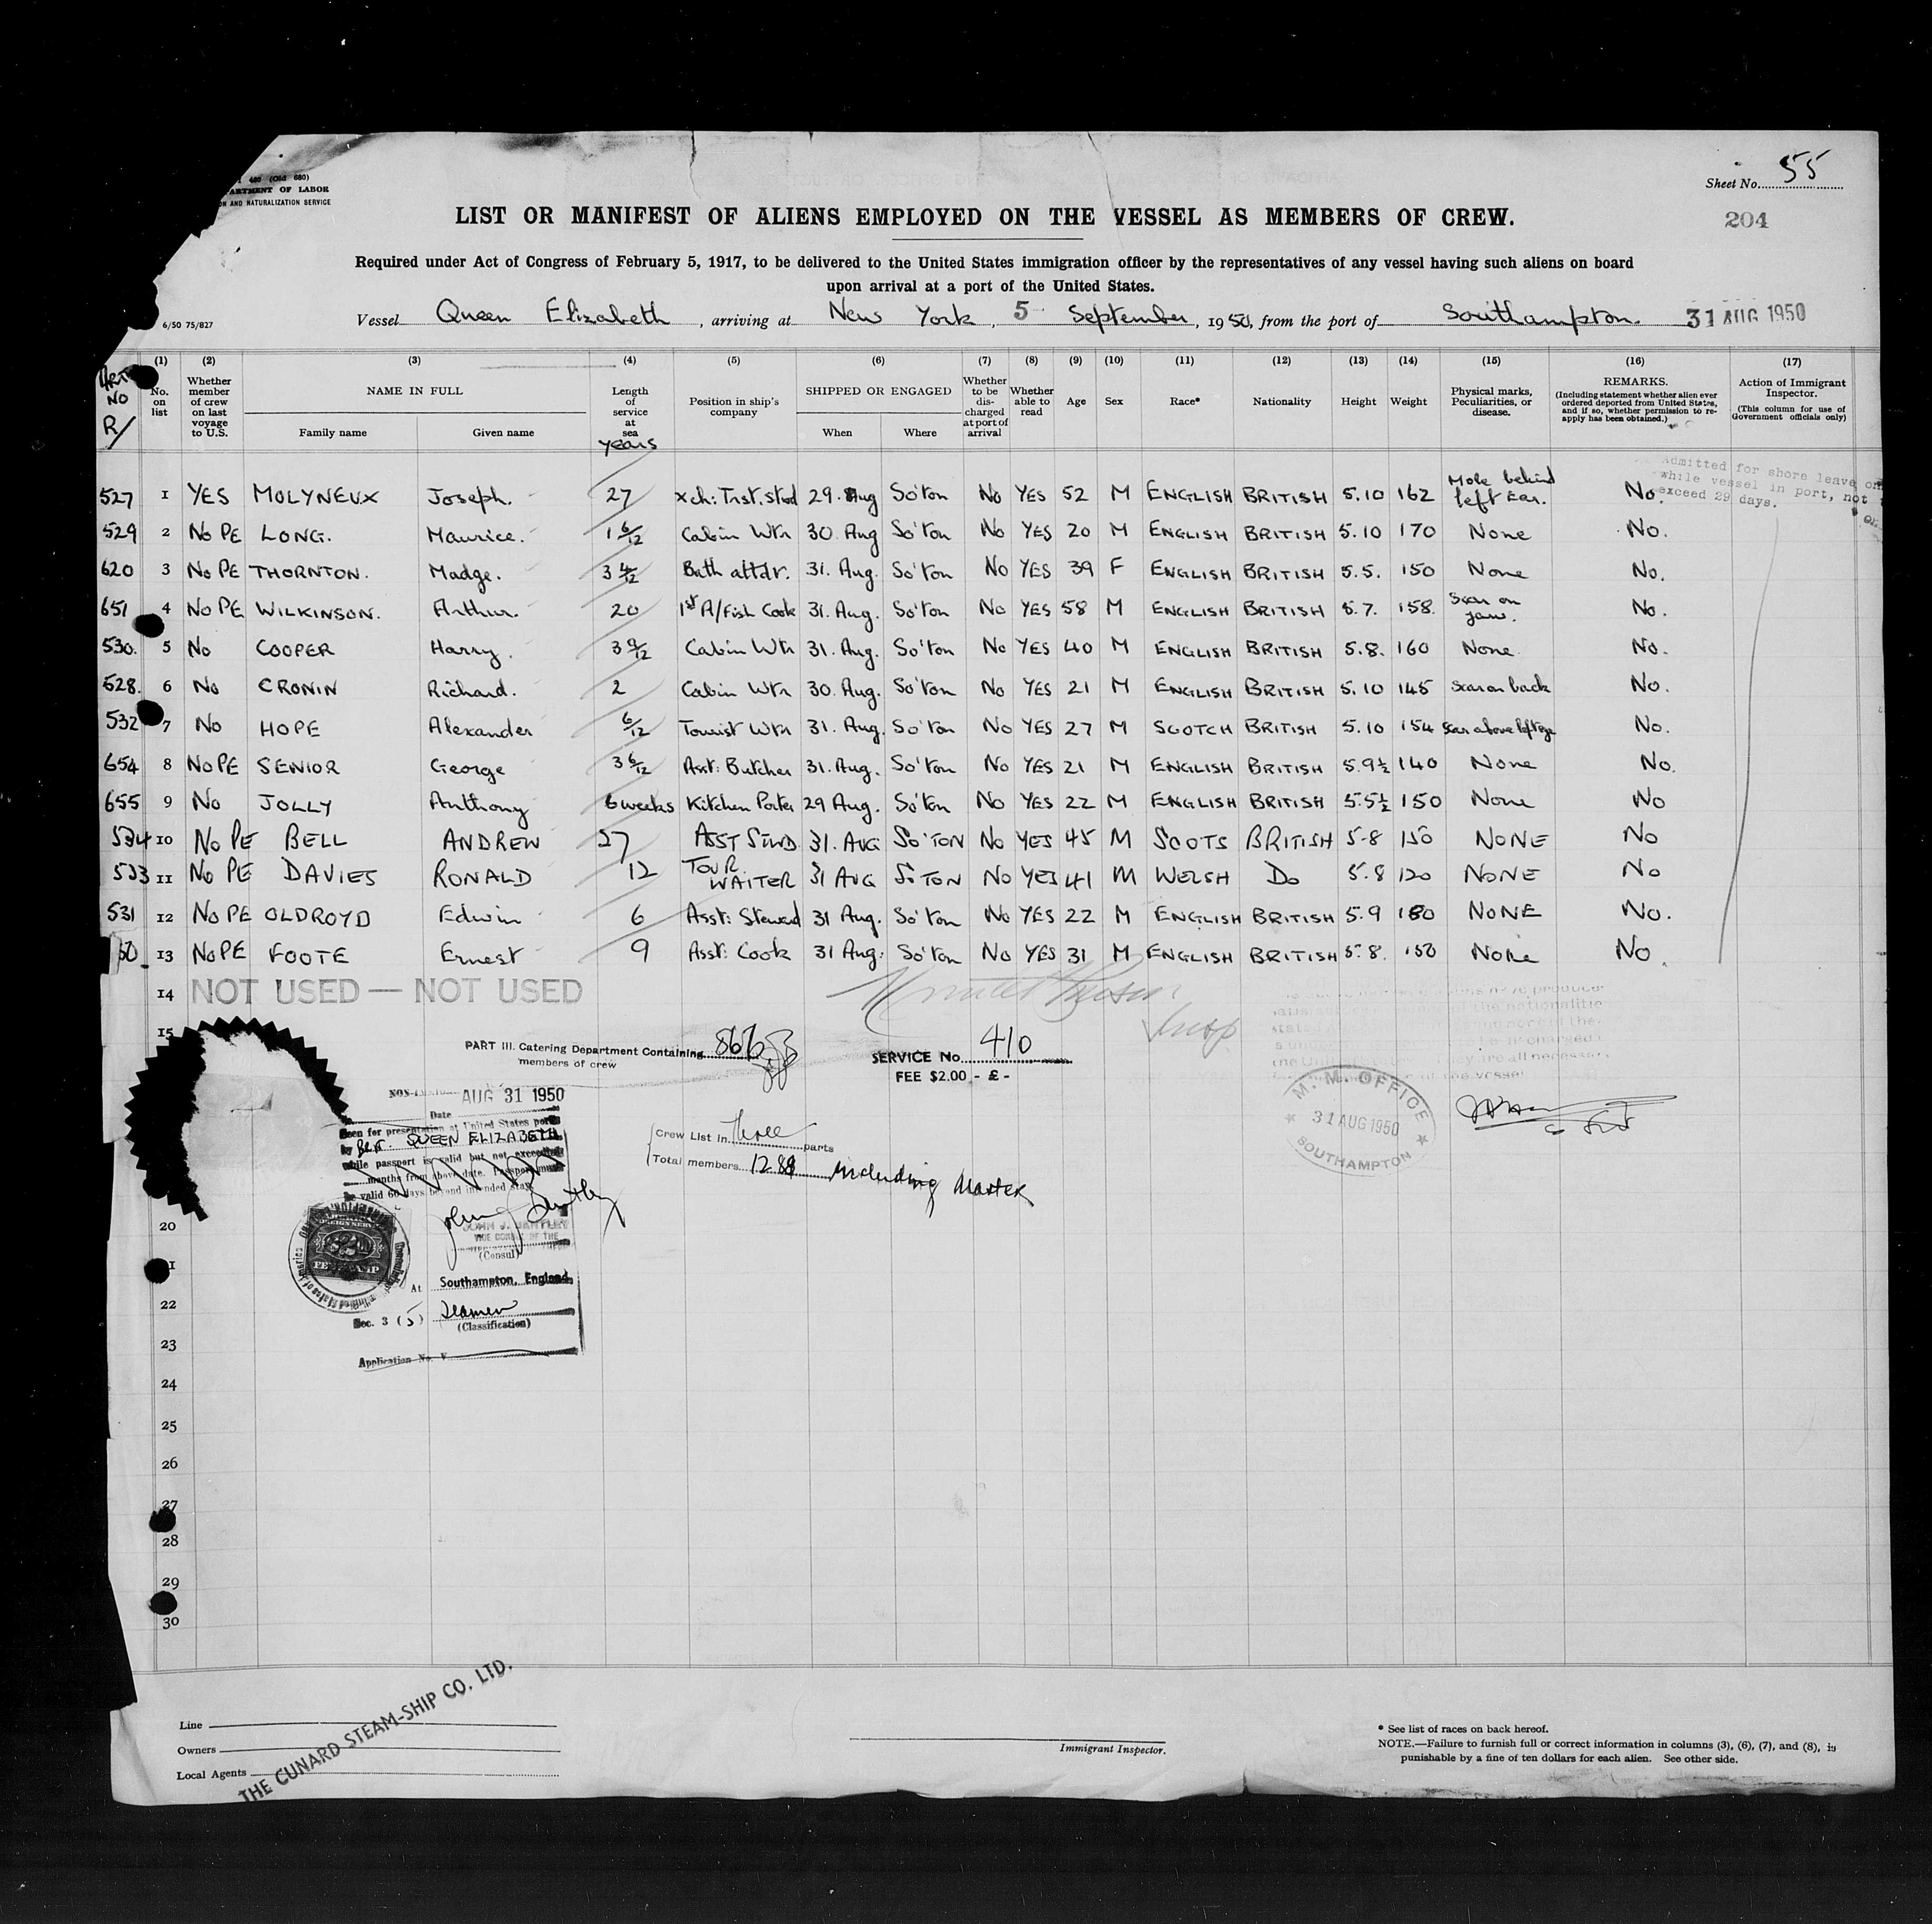 480 (Old 680)
ARTMENT OF LABOR
ON AND NATURALIZATION SERVICE
Sheet No. 55
204
LIST OR MANIFEST OF ALIENS EMPLOYED ON THE VESSEL AS MEMBERS OF CREW.
Required under Act of Congress of February 5, 1917, to be delivered to the United States immigration officer by the representatives of any vessel having such aliens on board
upon arrival at a port of the United States.
6/50 75/827
Vessel Queen Elizabeth, arriving at New York, 5 September, 1950, from the port of Southampton. 31 AUG 1950
ART NO R/
(1) No. on list
(2) Whether member of crew on last voyage to U.S.
(3) NAME IN FULL
Family name Given name
(4) Length of service at sea years
(5) Position in ship's company
(6) SHIPPED OR ENGAGED
When Where
(7) Whether to be discharged at port of arrival
(8) Whether able to read
(9) Age
(10) Sex
(11) Race*
(12) Nationality
(13) Height
(14) Weight
(15) Physical marks, Peculiarities, or disease.
(16) REMARKS. (Including statement whether alien ever ordered deported from United States, and if so, whether permission to re-apply has been obtained.)
(17) Action of Immigrant Inspector. (This column for use of Government officials only)
Admitted for shore leave
while vessel in port, not
exceed 29 days.
527 1 YES MOLYNEUX Joseph. 27 xch: Trst. stwd 29. Aug So'ton No YES 52 M ENGLISH BRITISH 5.10 162 Mole behind left Ear. No.
529 2 No PE LONG. Maurice. 1 6/12 Cabin Wtr 30. Aug So'ton No YES 20 M ENGLISH BRITISH 5.10 170 None No.
620 3 No PE THORNTON. Madge. 3 4/12 Bath attdr. 31. Aug. So'ton No YES 39 F ENGLISH BRITISH 5.5. 150 None No.
651 4 No PE WILKINSON. Arthur. 20 1st A/Fish Cook 31. Aug. So'ton No YES 58 M ENGLISH BRITISH 5.7. 158. Scar on jaw. No.
530. 5 No COOPER Harry. 3 9/12 Cabin Wtr 31. Aug. So'ton No YES 40 M ENGLISH BRITISH 5.8. 160 None No.
528. 6 No CRONIN Richard. 2 Cabin Wtr 30. Aug. So'ton No YES 21 M ENGLISH BRITISH 5.10 145 Scar on back No.
532 7 No HOPE Alexander 6/12 Tourist Wtr 31. Aug. So'ton No YES 27 M SCOTCH BRITISH 5.10 154 Scar above left eye No.
654 8 No PE SENIOR George 3 6/12 Asst: Butcher 31. Aug. So'ton No YES 21 M ENGLISH BRITISH 5.9½ 140 None No.
655 9 No JOLLY Anthony 6 weeks Kitchen Porter 29 Aug. So'ton No YES 22 M ENGLISH BRITISH 5.5½ 150 None No
534 10 No PE BELL ANDREW 27 ASST STWD 31. AUG SO'TON No YES 45 M SCOTS BRITISH 5-8 150 NONE No
533 11 No PE DAVIES RONALD 12 TOUR. WAITER 31 AUG So TON No YES 41 M WELSH Do 5.8 120 NONE No
531 12 No PE OLDROYD Edwin 6 Asst: Steward 31 Aug. So'ton No YES 22 M ENGLISH BRITISH 5.9 180 NONE No.
13 No PE FOOTE Ernest 9 Asst: Cook 31 Aug: So'ton No YES 31 M ENGLISH BRITISH 5.8. 150 None No.
14 NOT USED — NOT USED
15
PART III. Catering Department Containing 866
members of crew
SERVICE No. 410
FEE $2.00 - £ -
Insp
AUG 31 1950
Date
Seen for presentation at United States port
by Br. QUEEN ELIZABETH
while passport is valid but not exceeding
months from above date. Passport must
be valid 60 days beyond intended stay
JOHN J. BENTLEY
VICE CONSUL OF THE
(Consul)
At Southampton, England
Sec. 3 (5) Seamen
(Classification)
Application No. V
Crew List in three parts
Total members 1288 including Master
M. M. OFFICE
31 AUG 1950
SOUTHAMPTON
20
22
23
24
25
26
27
28
29
30
Line
Owners
Local Agents
THE CUNARD STEAM-SHIP CO. LTD.
Immigrant Inspector.
* See list of races on back hereof.
NOTE.—Failure to furnish full or correct information in columns (3), (6), (7), and (8), is
punishable by a fine of ten dollars for each alien. See other side.